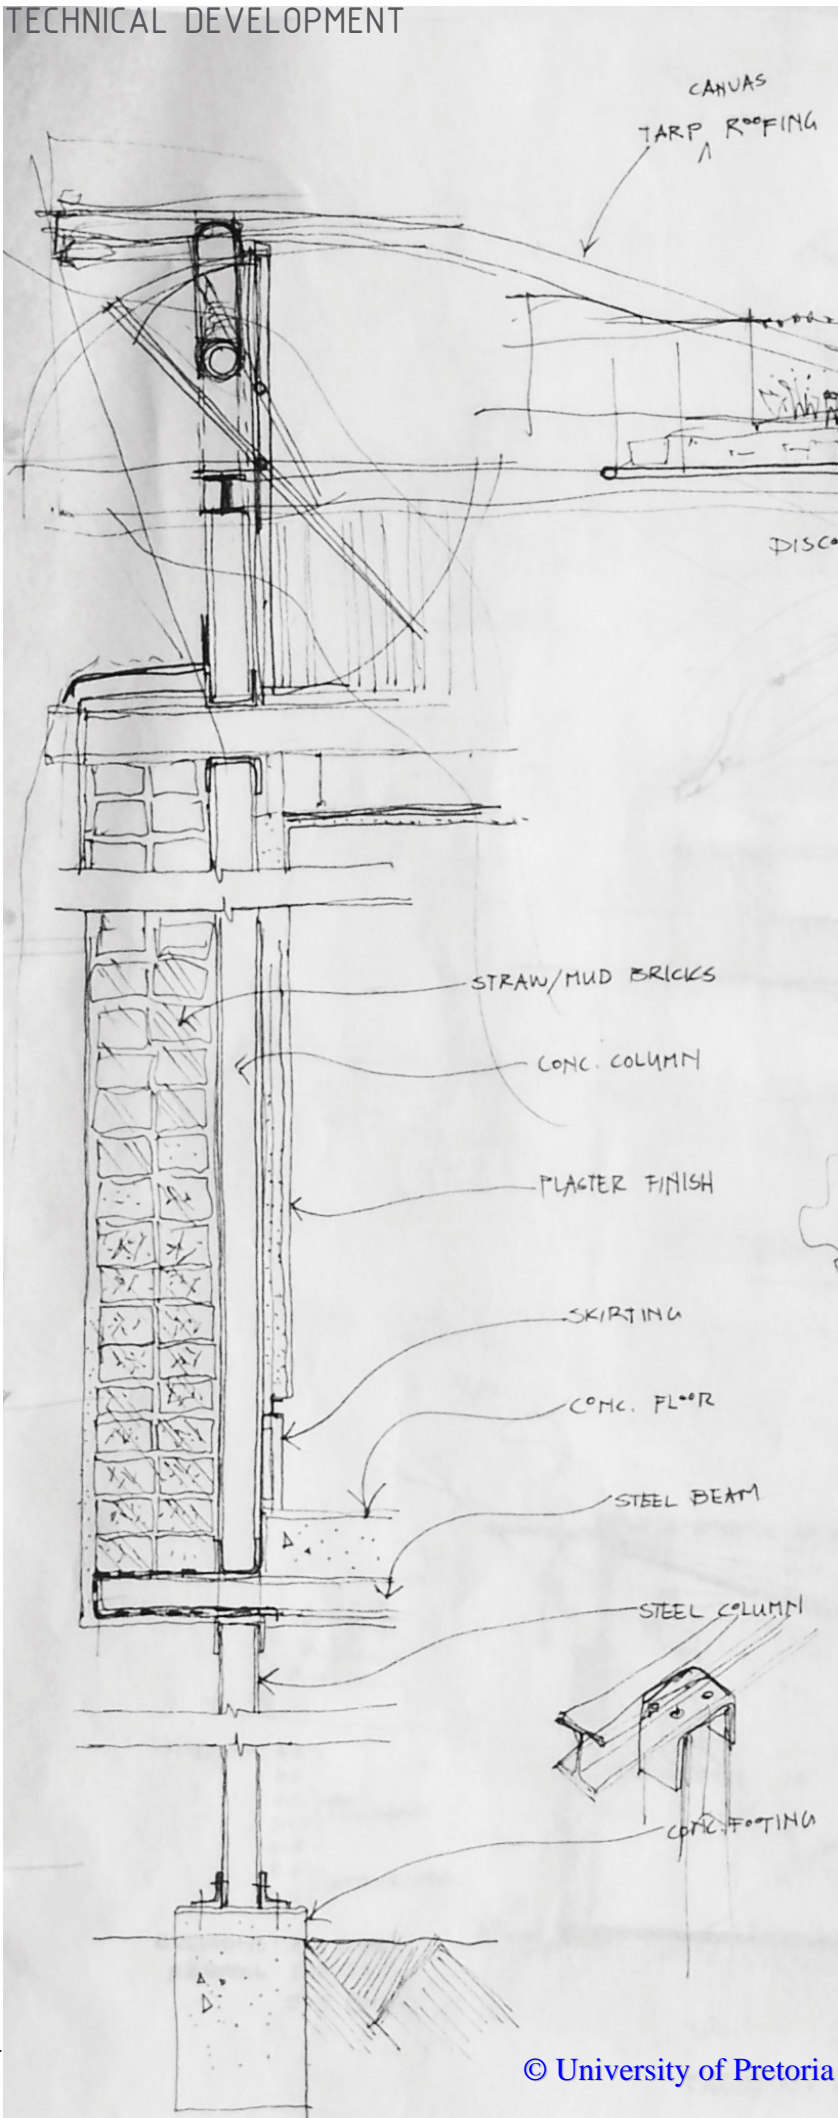 TECHNICAL DEVELOPMENT
CANVAS
TARP ^ ROOFING
DISCO
STRAW/MUD BRICKS
CONC. COLUMN
PLASTER FINISH
SKIRTING
CONC. FLOOR
STEEL BEAM
STEEL COLUMN
CONC. FOOTING
© University of Pretoria